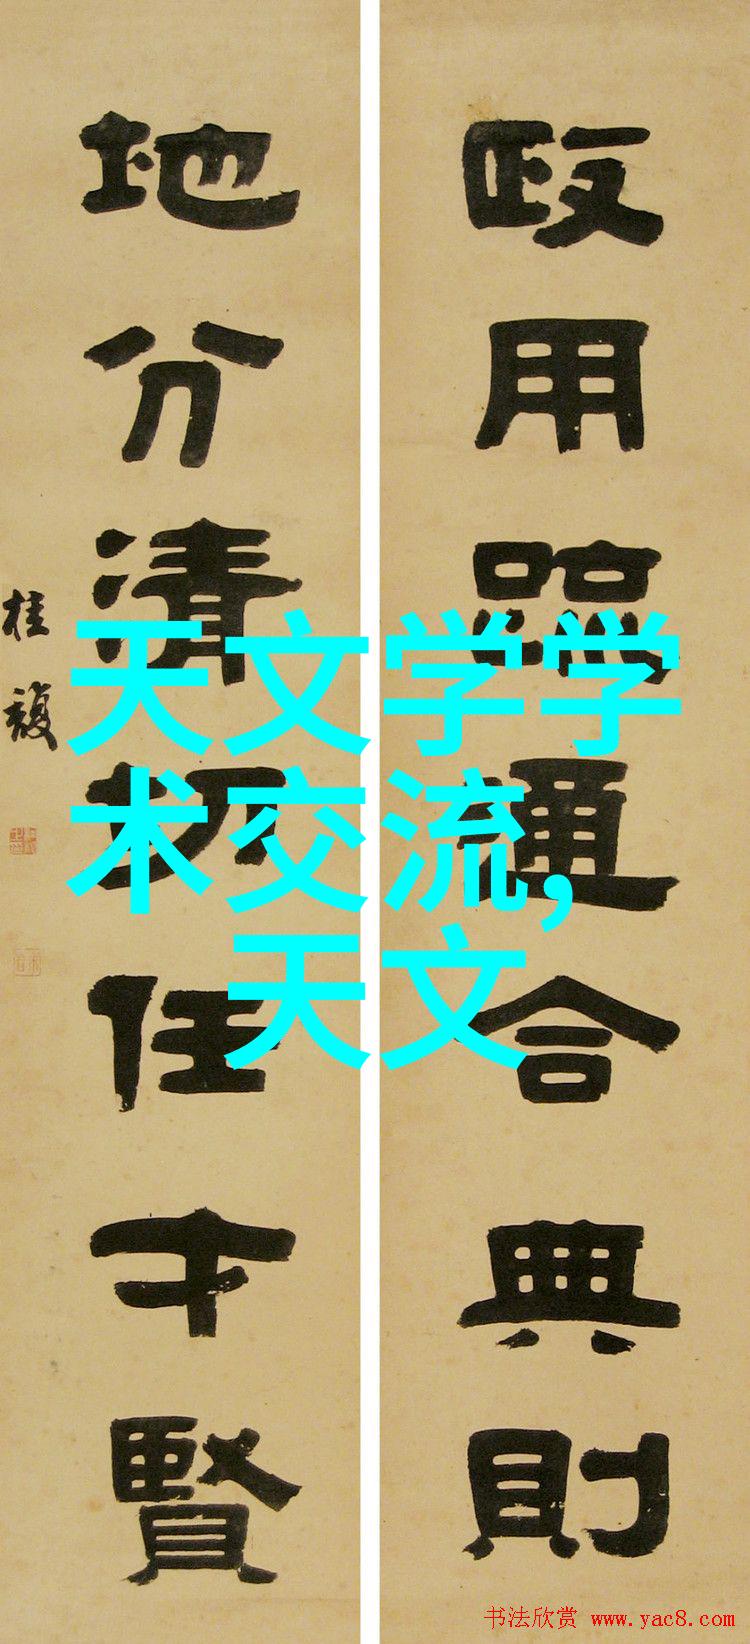 政用疏通合典則
地分清切任才賢
桂馥
天文学学
术交流,
天文
书法欣赏 www.yac8.com